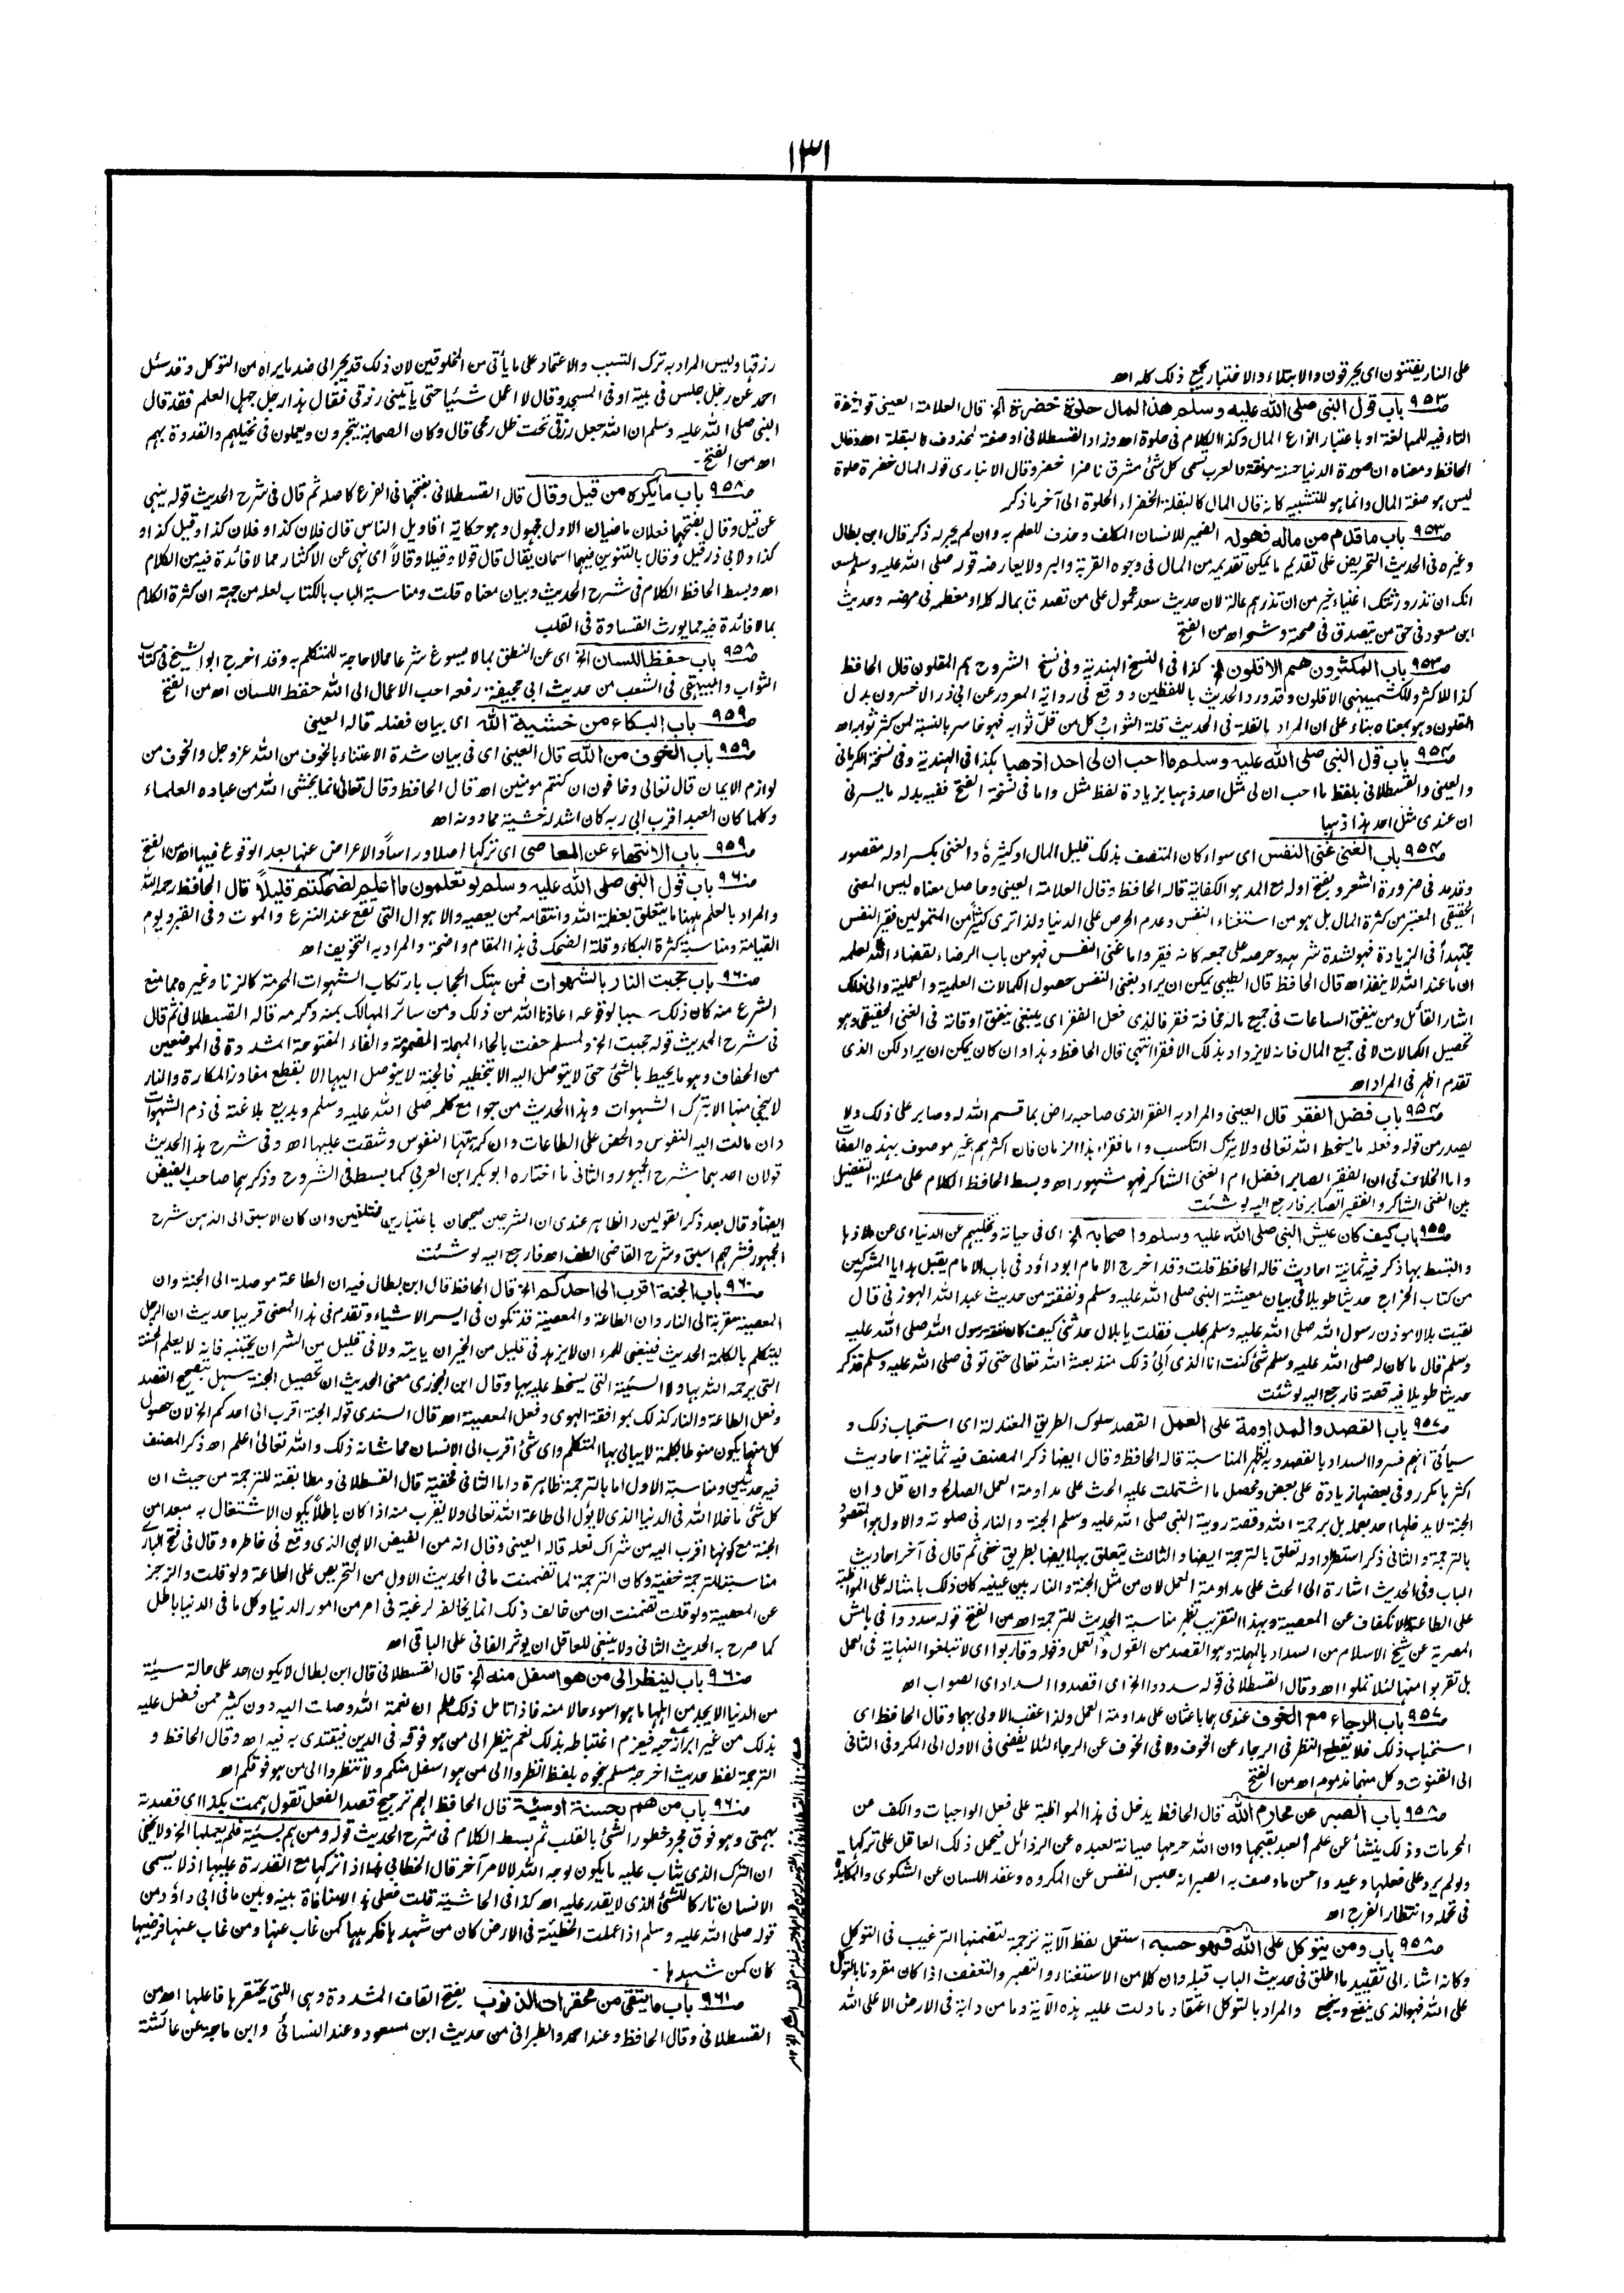 ١٣١
على النار يفتنون اى يحرقون والابتلاء والاختبار يجمع ذلك كله اھ
ص٩٥٣ باب قول النبى صلى الله عليه وسلم هذا المال حلوة خضرة الخ قال العلامة العينى قوله خضرة
التاء فيه للمبالغة او باعتبار انواع المال وكذا الكلام فى حلوة اھ وزاد القسطلانى او صفة لمحذوف كالبقلة اھ وقال
الحافظ ومعناه ان صورة الدنيا حسنة مونقة والعرب تسمى كل شئ مشرق ناضرا خضر وقال الانبارى قوله المال خضرة حلوة
ليس هو صفة المال وانما هو للتشبيه كانه قال المال كالبقلة الخضراء الحلوة الى آخر ما ذكر
ص٩٥٣ باب ما قدم من ماله فهو له الضمير للانسان المكلف وحذف للعلم به وان لم يجر له ذكر قال ابن بطال
وغيره فى الحديث التحريض على تقديم ما يمكن تقديمه من المال فى وجوه القربة والبر ولا يعارضه قوله صلى الله عليه وسلم لسعد
انك ان تذر ورثتك اغنياء خير من ان تذرهم عالة لان حديث سعد محمول على من تصدق بماله كله او معظمه فى مرضه وحديث
ابن مسعود فى حق من يتصدق فى صحته وشحه اھ من الفتح
ص٩٥٣ باب المكثرون هم الاقلون الخ كذا فى النسخ الهندية وفى نسخ الشروح هم المقلون قال الحافظ
كذا للاكثر وللكشميهنى الاقلون وقد ورد الحديث باللفظين ووقع فى رواية المعرور عن ابى ذر الاخسرون بدل
المقلون وهو بمعناه بناء على ان المراد بالقلة فى الحديث قلة الثواب وكل من قل ثوابه فهو خاسر بالنسبة لمن كثر ثوابه اھ
ص٩٥٤ باب قول النبى صلى الله عليه وسلم ما احب ان لى احد اذهبا هكذا فى الهندية وفى نسخة الكرمانى
والعينى والقسطلانى بلفظ ما احب ان لى مثل احد ذهبا بزيادة لفظ مثل واما فى نسخة الفتح ففيه بدله ما يسرنى
ان عندى مثل احد هذا ذهبا
ص٩٥٤ باب الغنى غنى النفس اى سواء كان المتصف بذلك قليل المال او كثيره والغنى بكسر اوله مقصور
وقد مد فى ضرورة الشعر وبفتح اوله مع المد هو الكفاية قاله الحافظ وقال العلامة العينى وحاصل معناه ليس المعنى
الحقيقى المعتبر من كثرة المال بل هو من استغناء النفس وعدم الحرص على الدنيا ولذا ترى كثيرا من المتمولين فقير النفس
مجتهدا فى الزيادة فهو لشدة شرهه وحرصه على جمعه كانه فقير واما غنى النفس فهو من باب الرضاء بقضاء الله لعلمه
ان ما عند الله لا ينفد اھ قال الحافظ قال الطيبى يمكن ان يراد بغنى النفس حصول الكمالات العلمية والعملية والى ذلك
اشار القائل ومن ينفق الساعات فى جميع ماله مخافة فقر فالذى فعل الفقر اى ينبغى ان ينفق اوقاته فى الغنى الحقيقى وهو
تحصيل الكمالات لا فى جميع المال فانه لا يزداد بذلك الا فقرا انتهى قال الحافظ وهذا وان كان يمكن ان يراد لكن الذى
تقدم اظهر فى المراد اھ
ص٩٥٤ باب فضل الفقر قال العينى والمراد به الفقر الذى صاحبه راض بما قسم الله له وصابر على ذلك ولا
يصدر من قوله وفعله ما يسخط الله تعالى ولا يترك التكسب واما فقراء هذا الزمان فان اكثرهم غير موصوف بهذه الصفات
واما الخلاف فى ان الفقير الصابر افضل ام الغنى الشاكر فهو مشهور اھ وبسط الحافظ الكلام على مسئلة التفضيل
بين الغنى الشاكر والفقير الصابر فارجع اليه لو شئت
ص٩٥٥ باب كيف كان عيش النبى صلى الله عليه وسلم واصحابه الخ اى فى حياته وتخليهم عن الدنيا اى عن ملاذها
والتبسط بها ذكر فيه ثمانية احاديث قاله الحافظ قلت وقد اخرج الامام ابو داؤد فى باب الامام يقبل هدايا المشركين
من كتاب الخراج حديثا طويلا فى بيان معيشة النبى صلى الله عليه وسلم ونفقته من حديث عبد الله الهوزنى قال
لقيت بلالا موذن رسول الله صلى الله عليه وسلم بحلب فقلت يا بلال حدثنى كيف كان نفقة رسول الله صلى الله عليه
وسلم قال ما كان له صلى الله عليه وسلم شئ كنت انا الذى الى ذلك منذ بعثه الله تعالى حتى توفى صلى الله عليه وسلم فذكر
حديثا طويلا فيه قصة فارجع اليه لو شئت
ص٩٥٧ باب القصد والمداومة على العمل القصد سلوك الطريق المعتدلة اى استحباب ذلك و
سياتى انهم فسروا السداد بالقصد وبه يظهر المناسبة قاله الحافظ وقال ايضا ذكر المصنف فيه ثمانية احاديث
اكثرها مكرر وفى بعضها زيادة على بعض ومحصل ما اشتملت عليه الحث على مداومة العمل الصالح وان قل وان
الجنة لا يدخلها احد بعمله بل برحمة الله وقصة روية النبى صلى الله عليه وسلم الجنة والنار فى صلوته والاول هو المقصود
بالترجمة والثانى ذكر استطرادا وله تعلق بالترجمة ايضا والثالث يتعلق بها ايضا بطريق خفى ثم قال فى آخر احاديث
الباب وفى الحديث اشارة الى الحث على مداومة العمل لان من مثل الجنة والنار بين عينيه كان ذلك باعثا له على المواظبة
على الطاعة والانكفاف عن المعصية وبهذا التقريب تظهر مناسبة الحديث للترجمة اھ من الفتح قوله سددوا فى هامش
المصرية عن شيخ الاسلام من السداد بالمهملة وهو القصد من القول والعمل وقوله وقاربوا اى لا تبلغوا النهاية فى العمل
بل تقربوا منها لئلا تملوا اھ وقال القسطلانى قوله سددوا الخ اى اقصدوا السداد اى الصواب اھ
ص٩٥٧ باب الرجاء مع الخوف عندى هما باعثان على مداومة العمل ولذا عقب الاولى بهما وقال الحافظ اى
استحباب ذلك فلا يقطع النظر فى الرجاء عن الخوف ولا فى الخوف عن الرجاء لئلا يفضى فى الاول الى المكر وفى الثانى
الى القنوت وكل منهما مذموم اھ من الفتح
ص٩٥٨ باب الصبر عن محارم الله قال الحافظ يدخل فى هذا المواظبة على فعل الواجبات والكف عن
المحرمات وذلك ينشأ عن علم العبد بقبحها وان الله حرمها صيانة لعبده عن الرذائل فيحمل ذلك العاقل على تركها
ولو لم يرد على فعلها وعيد واحسن ما وصف به الصبر انه حبس النفس عن المكروه وعقد اللسان عن الشكوى والمكابدة
فى تحمله وانتظار الفرج اھ
ص٩٥٨ باب ومن يتوكل على الله فهو حسبه استعمل لفظ الآية ترجمة لتضمنها الترغيب فى التوكل
وكانه اشار الى تقييد ما اطلق فى حديث الباب قبله وان كلا من الاستغناء والتصبر والتعفف اذا كان مقرونا بالتوكل
على الله فهو الذى ينفع وينجع والمراد بالتوكل اعتقاد ما دلت عليه هذه الآية وما من دابة فى الارض الا على الله
رزقها وليس المراد به ترك التسبب والاعتماد على ما يأتى من المخلوقين لان ذلك قد يجر الى ضد ما يراه من التوكل وقد سئل
احمد عن رجل جلس فى بيته او فى المسجد وقال لا اعمل شيئا حتى ياتينى رزقى فقال هذا رجل جهل العلم فقد قال
النبى صلى الله عليه وسلم ان الله جعل رزقى تحت ظل رمحى قال وكان الصحابة يتجرون ويعملون فى نخيلهم والقدوة بهم
اھ من الفتح ۔
ص٩٥٨ باب ما يكره من قيل وقال قال القسطلانى بفتحهما فى الفرع كاصله ثم قال فى شرح الحديث قوله ينهى
عن قيل وقال بفتحهما فعلان ماضيان الاول مجهول وهو حكاية اقاويل الناس قال فلان كذا وفلان كذا وقيل كذا و
كذا ولابى ذر قيل وقال بالتنوين فيهما اسمان يقال قال قولا وقيلا وقالا اى نهى عن الاكثار مما لا فائدة فيه من الكلام
اھ وبسط الحافظ الكلام فى شرح الحديث وبيان معناه قلت ومناسبة الباب بالكتاب لعله من جهة ان كثرة الكلام
بما لا فائدة فيه مما يورث القساوة فى القلب
ص٩٥٨ باب حفظ اللسان الخ اى عن النطق بما لا يسوغ شرعا مما لا حاجة للمتكلم به وقد اخرج ابو الشيخ فى كتاب
الثواب والبيهقى فى الشعب من حديث ابى جحيفة رفعه احب الاعمال الى الله حفظ اللسان اھ من الفتح
ص٩٥٩ باب البكاء من خشية الله اى بيان فضله قاله العينى
ص٩٥٩ باب الخوف من الله قال العينى اى فى بيان شدة الاعتناء بالخوف من الله عزوجل والخوف من
لوازم الايمان قال تعالى وخافون ان كنتم مومنين اھ قال الحافظ وقال تعالى انما يخشى الله من عباده العلماء
وكلما كان العبد اقرب الى ربه كان اشد له خشية مما دونه اھ
ص٩٥٩ باب الانتهاء عن المعاصى اى تركها اصلا وراسا والاعراض عنها بعد الوقوع فيها اھ من الفتح
ص٩٦٠ باب قول النبى صلى الله عليه وسلم لو تعلمون ما اعلم لضحكتم قليلا قال الحافظ رحمه الله
والمراد بالعلم ههنا ما يتعلق بعظمة الله وانتقامه ممن يعصيه والاهوال التى تقع عند النزع والموت وفى القبر ويوم
القيامة ومناسبة كثرة البكاء وقلة الضحك فى هذا المقام واضحة والمراد به التخويف اھ
ص٩٦٠ باب حجبت النار بالشهوات فمن هتك الحجاب بارتكاب الشهوات المحرمة كالزنا وغيره مما منع
الشرع منه كان ذلك سببا لوقوعه اعاذنا الله من ذلك ومن سائر المهالك بمنه وكرمه قاله القسطلانى ثم قال
فى شرح الحديث قوله حجبت الخ ولمسلم حفت بالحاء المهملة المضمومة والفاء المفتوحة المشددة فى الموضعين
من الحفاف وهو ما يحيط بالشئ حتى لا يتوصل اليه الا بتخطيه فالجنة لا يتوصل اليها الا بقطع مفاوز المكاره والنار
لا ينجى منها الا بترك الشهوات وهذا الحديث من جوامع كلمه صلى الله عليه وسلم وبديع بلاغته فى ذم الشهوات
وان مالت اليه النفوس والحض على الطاعات وان كرهتها النفوس وشقت عليها اھ وفى شرح هذا الحديث
قولان احدهما شرح الجمهور والثانى ما اختاره ابو بكر ابن العربى كما بسط فى الشروح وذكرهما صاحب الفيض
ايضا وقال بعد ذكر القولين والظاهر عندى ان الشرحين صحيحان باعتبارين مختلفين وان كان الاسبق الى الذهن شرح
الجمهور فشرحهم اسبق وشرح القاضى الطف اھ فارجع اليه لو شئت
ص٩٦٠ باب الجنة اقرب الى احدكم الخ قال الحافظ قال ابن بطال فيه ان الطاعة موصلة الى الجنة وان
المعصية مقربة الى النار وان الطاعة والمعصية قد تكون فى ايسر الاشياء وتقدم فى هذا المعنى قريبا حديث ان الرجل
ليتكلم بالكلمة الحديث فينبغى للمرء ان لا يزهد فى قليل من الخير ان ياتيه ولا فى قليل من الشر ان يجتنبه فانه لا يعلم الحسنة
التى يرحمه الله بها ولا السيئة التى يسخط عليه بها وقال ابن الجوزى معنى الحديث ان تحصيل الجنة سهل بتصحيح القصد
وفعل الطاعة والنار كذلك بموافقة الهوى وفعل المعصية اھ قال السندى قوله الجنة اقرب الى احدكم الخ لان حصول
كل منهما يكون منوطا بكلمة لا يبالى بها المتكلم واى شئ اقرب الى الانسان مما شانه ذلك والله تعالى اعلم اھ ذكر المصنف
فيه حديثين ومناسبة الاول اما بالترجمة ظاهرة واما الثانى فخفية قال القسطلانى ومطابقته للترجمة من حيث ان
كل شئ ما خلا الله فى الدنيا الذى لا يؤل الى طاعة الله تعالى ولا يقرب منه اذا كان باطلا يكون الاشتغال به مبعدا من
الجنة مع كونها اقرب اليه من شراك نعله قاله العينى وقال انه من الفيض الالهى الذى وقع فى خاطره وقال فى فتح البارى
مناسبته للترجمة خفية وكان الترجمة لما تضمنت ما فى الحديث الاول من التحريض على الطاعة ولو قلت والزجر
عن المعصية ولو قلت تضمنت ان من خالف ذلك انما يخالفه لرغبة فى امر من امور الدنيا وكل ما فى الدنيا باطل
كما صرح به الحديث الثانى ولا ينبغى للعاقل ان يوثر الفانى على الباقى اھ
ص٩٦٠ باب لينظر الى من هو اسفل منه الخ قال القسطلانى قال ابن بطال لا يكون احد على حالة سيئة
من الدنيا الا يجد من اهلها ما هو اسوء حالا منه فاذا تامل ذلك علم ان نعمة الله وصلت اليه دون كثير ممن فضل عليه
بذلك من غير امر اوجبه فيعزم اغتباطه بذلك نعم ينظر الى من هو فوقه فى الدين فيقتدى به فيه اھ وقال الحافظ و
الترجمة لفظ حديث اخرجه مسلم بنحوه بلفظ انظروا الى من هو اسفل منكم ولا تنظروا الى من هو فوقكم اھ
ص٩٦٠ باب من هم بحسنة او سيئة قال الحافظ الهم ترجيح قصد الفعل تقول هممت بكذا اى قصدته
بهمتى وهو فوق مجرد خطور الشئ بالقلب ثم بسط الكلام فى شرح الحديث قوله ومن هم بسيئة فلم يعملها الخ ولا يخفى
ان الترك الذى يثاب عليه ما يكون لوجه الله لا لامر آخر قال الخطابى هذا اذا تركها مع القدرة عليها اذ لا يسمى
الانسان تاركا للشئ الذى لا يقدر عليه اھ كذا فى الحاشية قلت فعلى هذا لا منافاة بينه وبين ما فى ابى داؤد من
قوله صلى الله عليه وسلم اذا عملت الخطيئة فى الارض كان من شهدها فكرهها كمن غاب عنها ومن غاب عنها فرضيها
كان كمن شهدها ۔
ص٩٦١ باب ما يتقى من محقرات الذنوب بفتح القاف المشددة وهى اللتى يحتقرها فاعلها اھ من
القسطلانى وقال الحافظ وعند احمد والطبرانى من حديث ابن مسعود وعند النسائى وابن ماجة عن عائشة